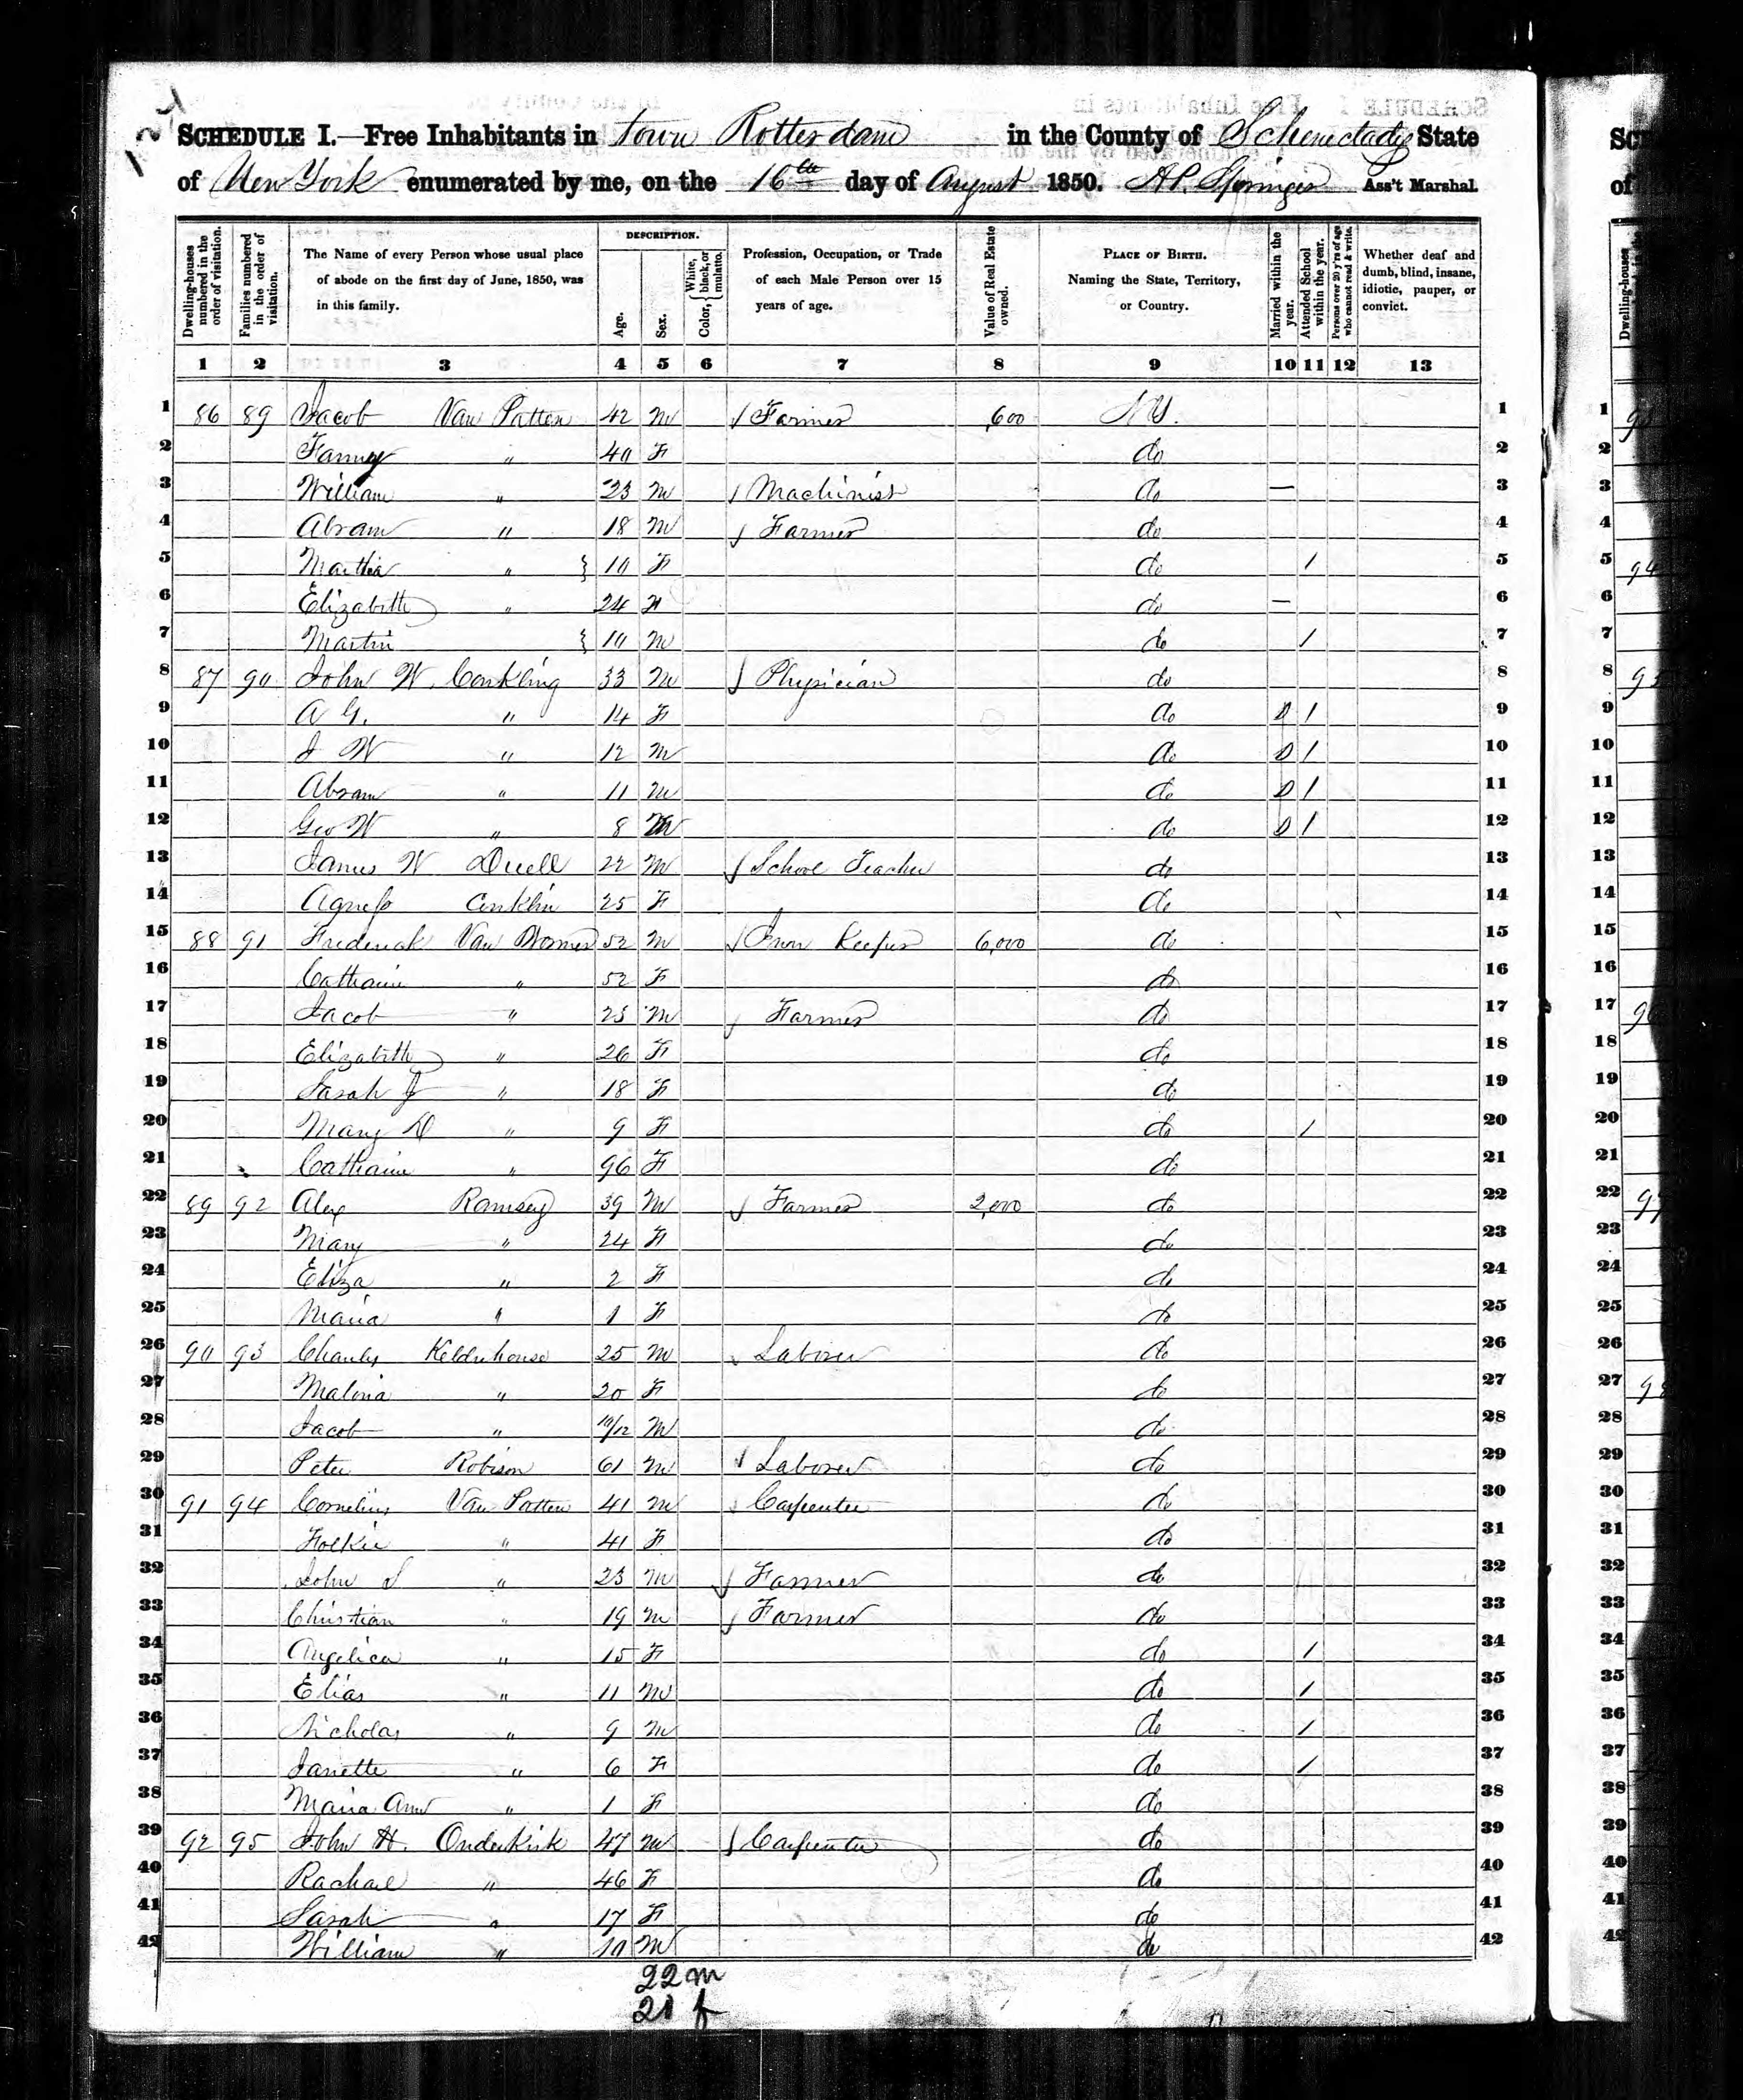 SCHEDULE I.—Free Inhabitants in Town Rotterdam in the County of Schenectady State
of New York enumerated by me, on the 16th day of August 1850. A P. Springer Ass't Marshal.
Dwelling-houses numbered in the order of visitation.
Families numbered in the order of visitation.
The Name of every Person whose usual place of abode on the first day of June, 1850, was in this family.
DESCRIPTION.
Age.
Sex.
Color, { White, black, or mulatto.
Profession, Occupation, or Trade of each Male Person over 15 years of age.
Value of Real Estate owned.
PLACE OF BIRTH. Naming the State, Territory, or Country.
Married within the year.
Attended School within the year.
Persons over 20 y'rs of age who cannot read & write.
Whether deaf and dumb, blind, insane, idiotic, pauper, or convict.
1 2 3 4 5 6 7 8 9 10 11 12 13
1 86 89 Jacob Van Patten 42 M Farmer 600 N Y. 1
2 Fanny " 40 F do 2
3 William " 23 M Machinist do — 3
4 Abram " 18 M Farmer do 4
5 Martha " } 10 F do 1 5
6 Elizabeth " 24 F do — 6
7 Martin } 10 M do 1 7
8 87 90 John W. Conkling 33 M Physician do 8
9 A G. " 14 F do 1 9
10 J W " 12 M do 1 10
11 Abram " 11 M do 1 11
12 Geo W " 8 M do 1 12
13 James W Duell 22 M School Teacher do 13
14 Agness Conklin 25 F do 14
15 88 91 Frederick Van 52 M Inn Keeper 6,000 do 15
16 Catharine " 52 F do 16
17 Jacob " 23 M Farmer do 17
18 Elizabeth " 26 F do 18
19 Sarah J " 18 F do 19
20 Mary D " 9 F do 1 20
21 Catharine " 96 F do 21
22 89 92 Alex Ramsey 39 M Farmer 2,000 do 22
23 Mary " 24 F do 23
24 Eliza " 2 F do 24
25 Maria " 1 F do 25
26 90 93 Charles Keldrehouse 25 M Laborer do 26
27 Malvina " 20 F do 27
28 Jacob " 10/12 M do 28
29 Peter Robison 61 M Laborer do 29
30 91 94 Cornelius Van Patten 41 M Carpenter do 30
31 Folkie " 41 F do 31
32 John S " 23 M Farmer do 32
33 Christian " 19 M Farmer do 33
34 Angelica " 15 F do 1 34
35 Elias " 11 M do 1 35
36 Nicholas " 9 M do 1 36
37 Janette " 6 F do 1 37
38 Maria Ann " 1 F do 38
39 92 95 John H. Onderkirk 47 M Carpenter do 39
40 Rachael " 46 F do 40
41 Sarah " 17 F do 41
42 William " 10 M do 42
22 m
20 f